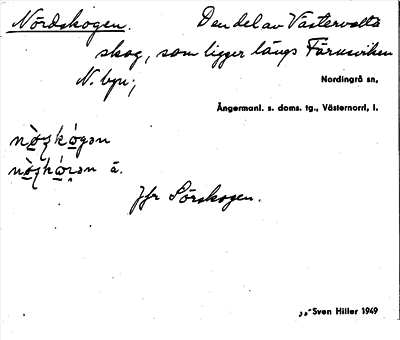 Nordskogen. Den del av Västervälta
skog, som ligger längs Färusviken
N. byn;
Nordingrå sn,
Ångermanl. s. doms. tg., Västernorrl, l.
nòʂkógən
ā.
Jfr Sörskogen.
Sven Hiller 1949